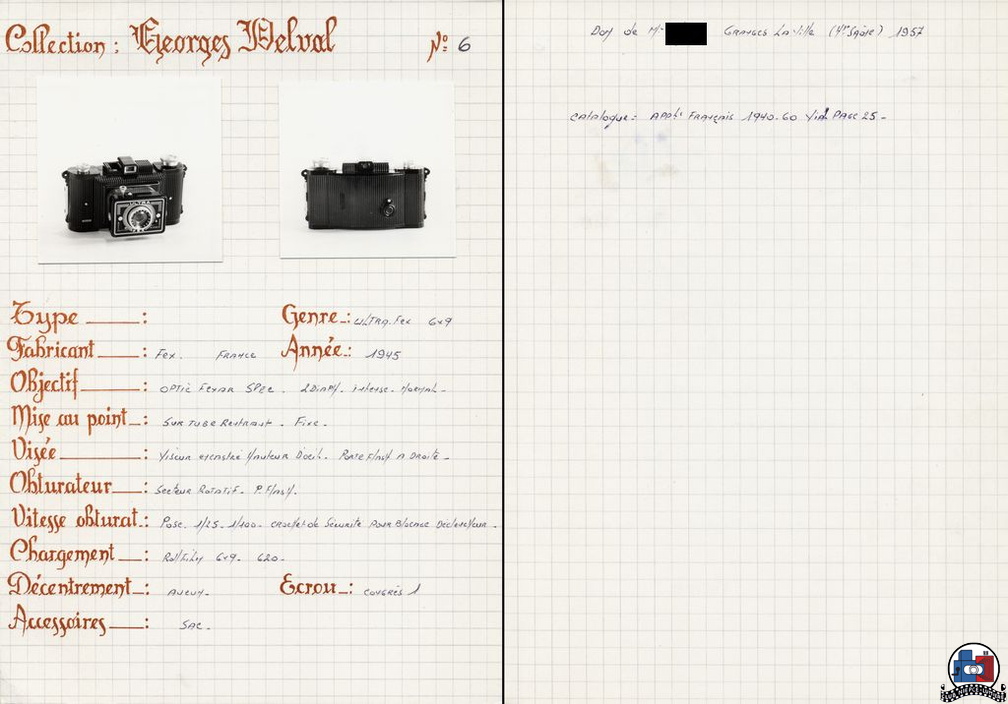 Collection : Georges Delval Nº 6
Type : Genre : ULTRA.Fex 6x9
Fabricant : Fex. FRANCE Année : 1945
Objectif : OPTIC FEXAR SPEC. 2 Diaph. intense. Normal.
Mise au point : SUR TUBE Rentrant. Fixe.
Visée : Viseur Hauteur D'oeil. Porte Flash A Droite.
Obturateur : Secteur Rotatif. P.Flash.
Vitesse obturat. : Pose. 1/25. 1/100. crochet de Sécurité POUR Blocage Déclencheur.
Chargement : Rollfilm 6x9. 620.
Décentrement : Aucun. Ecrou : CONGRÈS 1
Accessoires : SAC.
Don de Mr GRANGES La Ville (Hte Saône) 1957
Catalogue : APPts Français 1940-60 Vial PAGE 25.
ULTRA